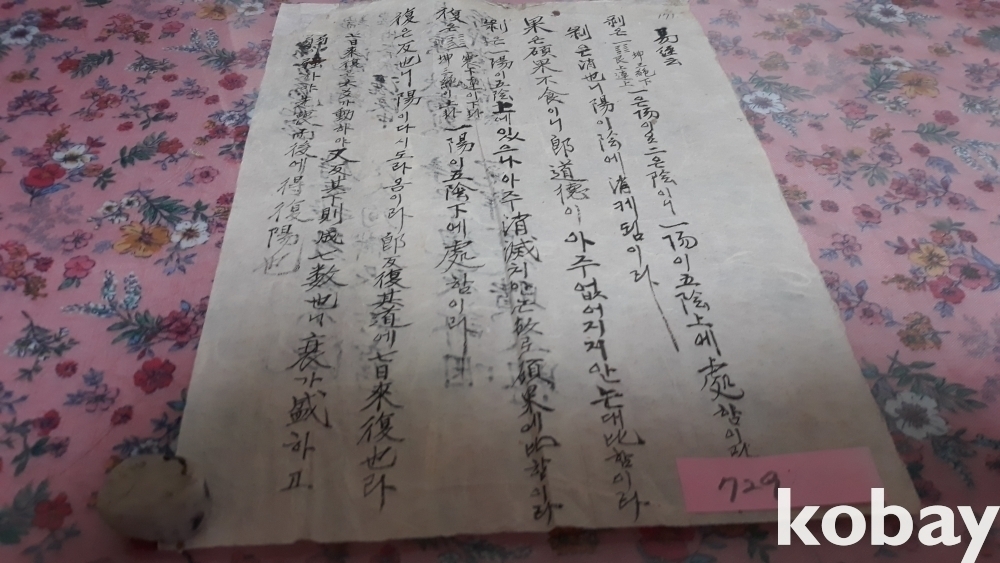 易経云
剝은 坤下艮上 一은陽이요 二은陰이니 一陽이五陰上에處함이라
剝은消也니陽이陰에消케됨이라
果은碩果不食이니郎道德이아주없어지지안는대比함이라
剝은一陽이五陰上에있으나아주消滅치안는故로碩果에比함이라
復은 震下 坤上 一陽이五陰下에處함이라
復은反也니陽이다시도라옴이라郎反復其道에七日來復也라
七日來復은 動하야又反其下則成七數也니衰가盛하고
後에得復陽
729
kobay